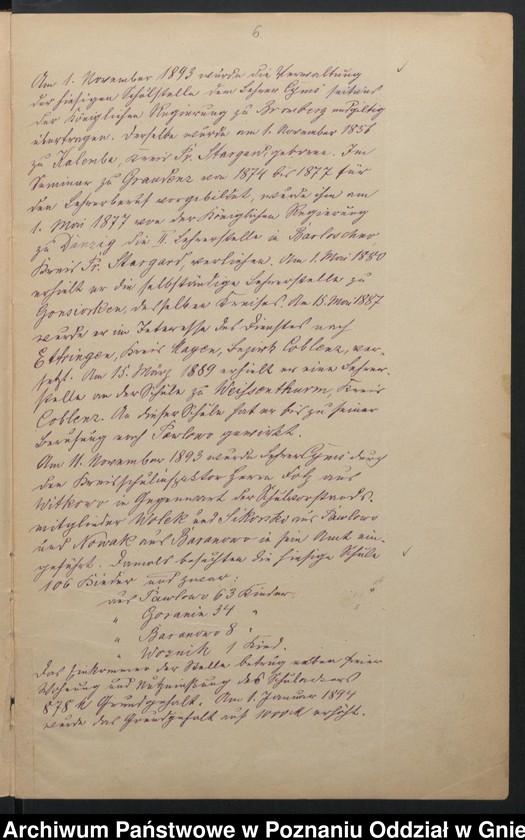 6.
Am 1. November 1893 wurde die Verwaltung
der hiesigen Schulstelle dem Lehrer Cyms seitens
der Königlichen Regierung zu Bromberg endgiltig
übertragen. Derselbe wurde am 1. November 1856
zu Kalembe, Kreis Pr. Stargard, geboren. Im
Seminar zu Graudenz von 1874 bis 1877 für
den Lehrerberuf vorgebildet, wurde ihm am
1. Mai 1877 von der Königlichen Regierung
zu Danzig die II. Lehrerstelle in Barloschno,
Kreis Pr. Stargard verliehen. Am 1. Mai 1880
erhielt er die selbständige Lehrerstelle zu
Gonsiorken, desselben Kreises. Am 15. Mai 1887
wurde er im Interesse des Dienstes nach
Ettringen, Kreis Mayen, Bezirk Coblenz, ver-
setzt. Am 15. März 1889 erhielt er eine Lehrer-
stelle an der Schule zu Weißenthurm, Kreis
Coblenz. An dieser Schule hat er bis zu seiner
Berufung nach Pawlowo gewirkt.
Am 11. November 1893 wurde Lehrer Cyms durch
den Kreisschulinspektor Herrn Folz aus
Witkowo in Gegenwart der Schulvorstands-
mitglieder Wolek und Sikorski aus Pawlowo
und Nowak aus Baranowo in sein Amt ein-
geführt. Damals besuchten die hiesige Schule
106 Kinder und zwar:
aus Pawlowo 63 Kinder
" Goranin 34 "
" Baranowo 8 "
" Woznik 1 Kind.
Das Einkommen der Stelle betrug neben freier
Wohnung und Nutznießung des Schulackers
878 M Grundgehalt. Am 1. Januar 1894
wurde das Grundgehalt auf 1000 M erhöht.
Archiwum Państwowe w Poznaniu Oddział w Gnie